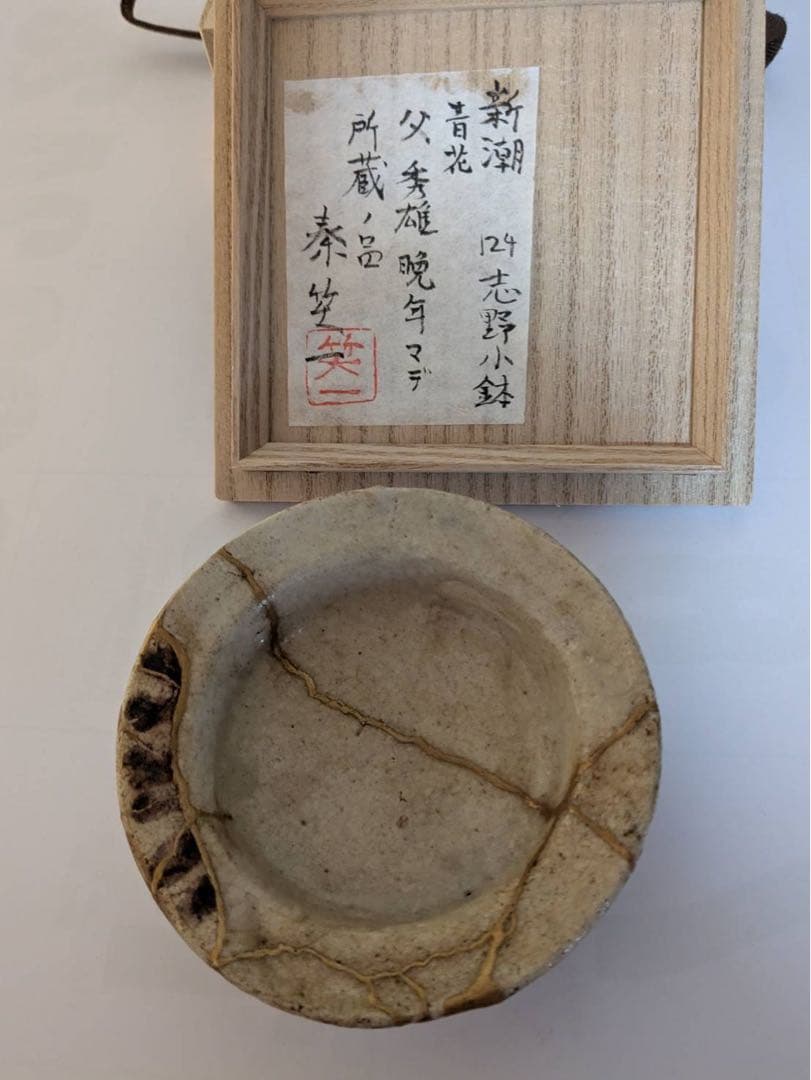 新潮 124 志野小鉢
青花
父、秀雄 晩年マデ
所蔵ノ品
秦笑一
笑一